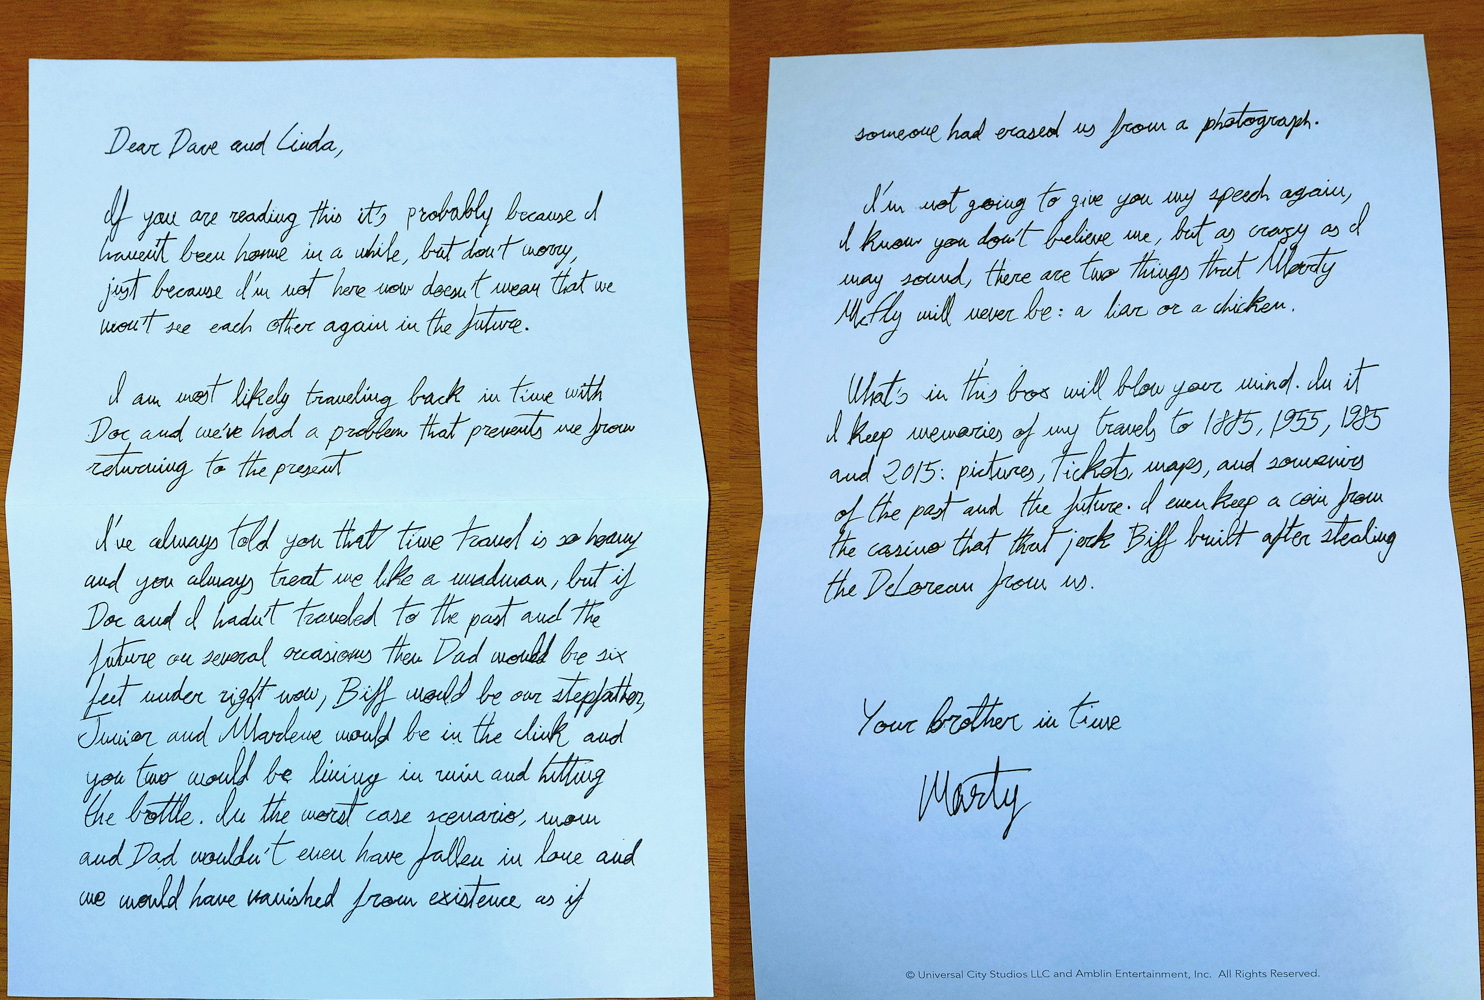 Dear Dave and Linda,
If you are reading this it's probably because I
haven't been home in a while, but don't worry,
just because I'm not here now doesn't mean that we
won't see each other again in the future.
I am most likely traveling back in time with
Doc and we've had a problem that prevents me from
returning to the present
I've always told you that time travel is so heavy
and you always treat me like a madman, but if
Doc and I hadn't traveled to the past and the
future on several occasions then Dad would be six
feet under right now, Biff would be our stepfather,
Junior and Marlene would be in the clink and
you two would be living in ruin and hitting
the bottle. In the worst case scenario, mom
and Dad wouldn't even have fallen in love and
we would have vanished from existence as if
someone had erased us from a photograph.
I'm not going to give you my speech again,
I know you don't believe me, but as crazy as I
may sound, there are two things that Marty
McFly will never be: a liar or a chicken.
What's in this box will blow your mind. In it
I keep memories of my travels to 1885, 1955, 1985
and 2015: pictures, tickets, maps, and souvenirs
of the past and the future. I even keep a coin from
the casino that that jerk Biff built after stealing
the DeLorean from us.
Your brother in time
Marty
© Universal City Studios LLC and Amblin Entertainment, Inc. All Rights Reserved.